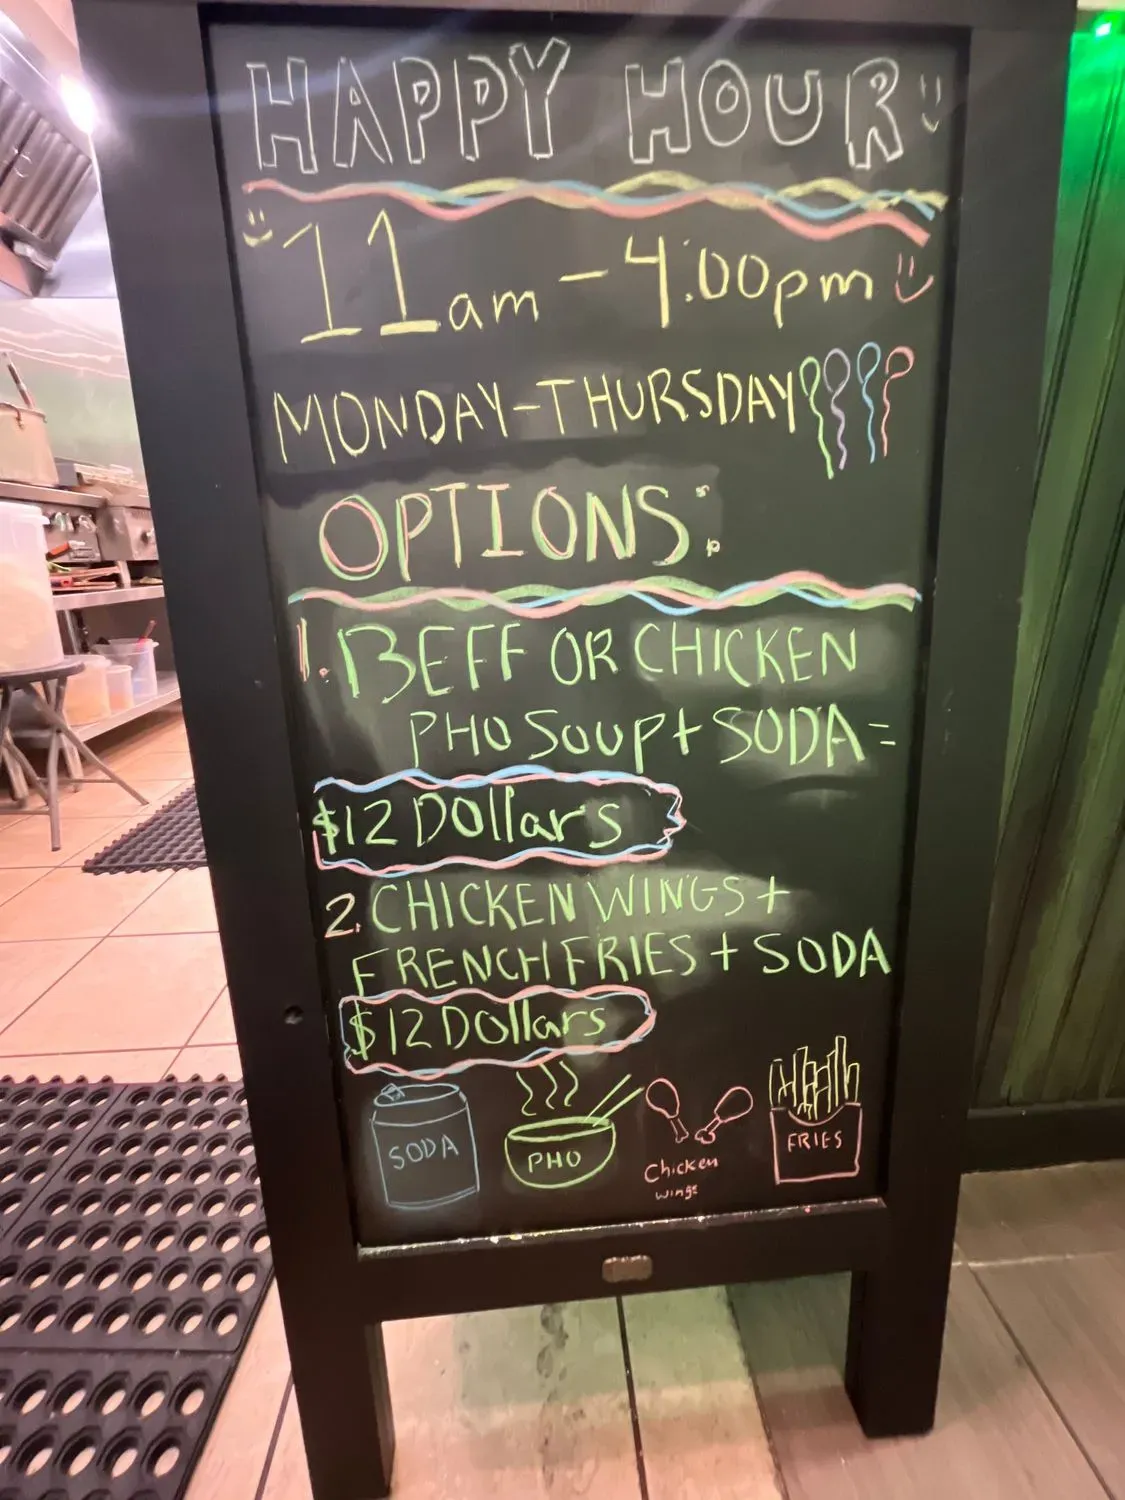 HAPPY HOUR
11am - 4:00pm
MONDAY-THURSDAY
OPTIONS:
1. BEFF OR CHICKEN
PHO SOUP + SODA =
$12 Dollars
2. CHICKEN WINGS +
FRENCH FRIES + SODA
$12 Dollars
SODA
PHO
Chicken
wings
FRIES